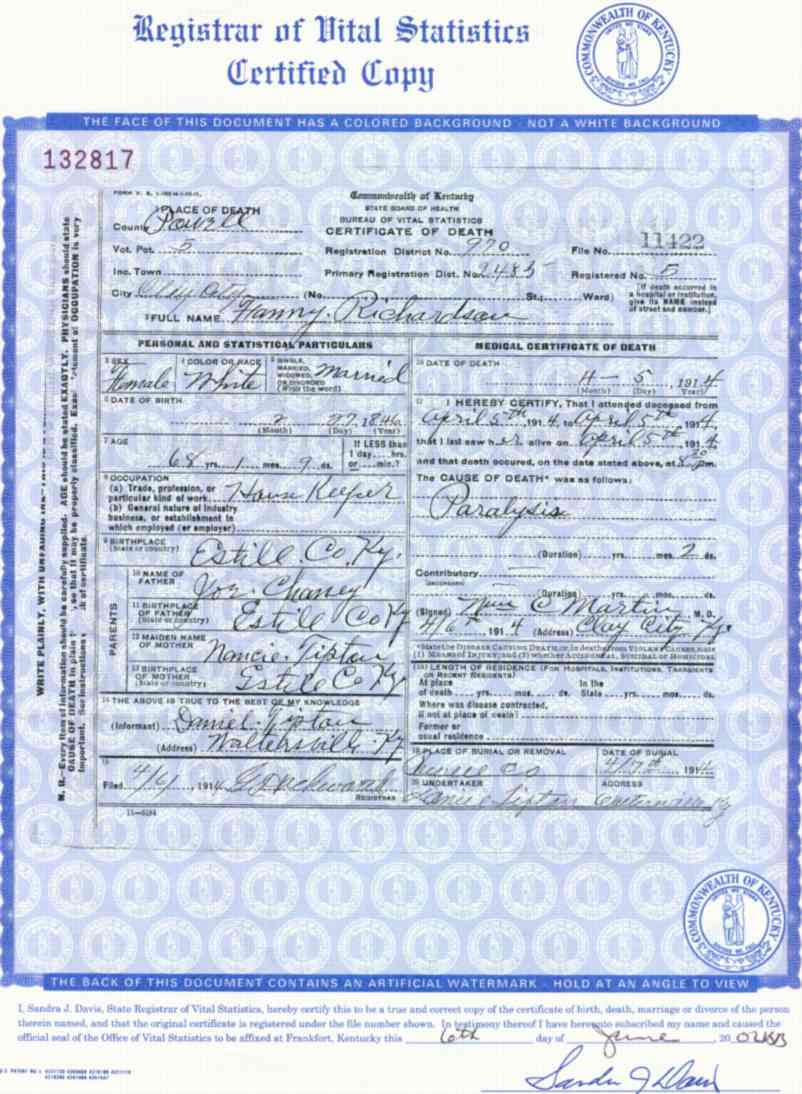 Registrar of Vital Statistics
Certified Copy
COMMONWEALTH OF KENTUCKY
THE FACE OF THIS DOCUMENT HAS A COLORED BACKGROUND - NOT A WHITE BACKGROUND
132817
Commonwealth of Kentucky
STATE BOARD OF HEALTH
BUREAU OF VITAL STATISTICS
CERTIFICATE OF DEATH
1 PLACE OF DEATH
County Powell
Vot. Pct. 5 Registration District No. 970 File No. 11422
Inc. Town Primary Registration Dist. No. 2485 Registered No. 5
City Clay City (No. St.; Ward)
[If death occurred in a hospital or institution, give its NAME instead of street and number.]
2 FULL NAME Fanny. Richardson
PERSONAL AND STATISTICAL PARTICULARS
3 SEX Female
4 COLOR OR RACE White
5 SINGLE, MARRIED, WIDOWED, OR DIVORCED (Write the word) Married
6 DATE OF BIRTH
2 27, 1846
(Month) (Day) (Year)
7 AGE
68 yrs. 1 mos. 9 ds.
If LESS than 1 day hrs. or min.?
8 OCCUPATION
(a) Trade, profession, or particular kind of work House Keeper
(b) General nature of industry business, or establishment in which employed (or employer)
9 BIRTHPLACE (State or country) Estill. Co. Ky.
PARENTS
10 NAME OF FATHER Joe. Chaney
11 BIRTHPLACE OF FATHER (State or country) Estile Co Ky
12 MAIDEN NAME OF MOTHER Nancie Tipton
13 BIRTHPLACE OF MOTHER (State or country) Estile Co Ky
14 THE ABOVE IS TRUE TO THE BEST OF MY KNOWLEDGE
(Informant) Daniel Tipton
(Address)
15
Filed 4/6, 1914
REGISTRAR
11-5184
MEDICAL CERTIFICATE OF DEATH
16 DATE OF DEATH
4 - 5, 1914
(Month) (Day) (Year)
17 I HEREBY CERTIFY, That I attended deceased from
April 5th, 1914, to April 5th, 1914,
that I last saw her alive on April 5th, 1914,
and that death occured, on the date stated above, at m.
The CAUSE OF DEATH* was as follows:
Paralysis
(Duration) yrs. mos. 2 ds.
Contributory
(SECONDARY)
(Duration) yrs. mos. ds.
(Signed) C Martin, M. D.
4/6th, 1914 (Address) Clay City, Ky.
*State the DISEASE CAUSING DEATH, or, in deaths from VIOLENT CAUSES, state (1) MEANS OF INJURY; and (2) whether ACCIDENTAL, SUICIDAL or HOMICIDAL.
18 LENGTH OF RESIDENCE (FOR HOSPITALS, INSTITUTIONS, TRANSIENTS OR RECENT RESIDENTS)
At place of death yrs. mos. ds. In the State yrs. mos. ds.
Where was disease contracted, if not at place of death?
Former or usual residence
19 PLACE OF BURIAL OR REMOVAL Co
DATE OF BURIAL 4/7th, 1914
20 UNDERTAKER Tipton
ADDRESS Ky
WRITE PLAINLY, WITH UNFADING
N. B.—Every item of information should be carefully supplied. AGE should be stated EXACTLY. PHYSICIANS should state
CAUSE OF DEATH in plain so that it may be properly classified. statement of OCCUPATION is very
important. See instructions of certificate.
COMMONWEALTH OF KENTUCKY
THE BACK OF THIS DOCUMENT CONTAINS AN ARTIFICIAL WATERMARK - HOLD AT AN ANGLE TO VIEW
I, Sandra J. Davis, State Registrar of Vital Statistics, hereby certify this to be a true and correct copy of the certificate of birth, death, marriage or divorce of the person
therein named, and that the original certificate is registered under the file number shown. In testimony thereof I have hereunto subscribed my name and caused the
official seal of the Office of Vital Statistics to be affixed at Frankfort, Kentucky this 6th day of June, 20
Sandra J Davis